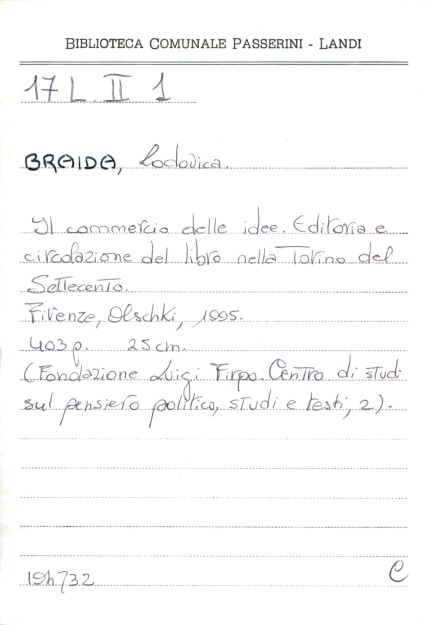 BIBLIOTECA COMUNALE PASSERINI - LANDI
17 L II 1
BRAIDA, Lodovica.
Il commercio delle idee. Editoria e
circolazione del libro nella Torino del
Settecento.
Firenze, Olschki, 1995.
403 p. 25 cm.
(Fondazione Luigi Firpo. Centro di studi
sul pensiero politico, studi e testi, 2).
194732 C